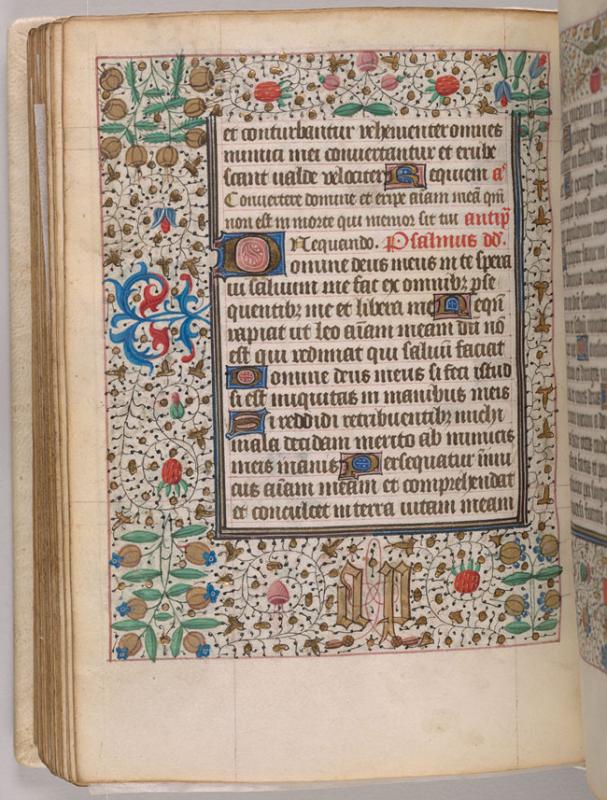 et conturbantur vehementer omnes
inimici mei convertantur et erube
scant valde velociter Requiem a͛
Convertere domine et eripe aīam meā qm̄
non est in morte qui memor sit tui antip̄
Nequando. Psalmus dd̄.
Domine deus meus in te spera
vi salvum me fac ex omnibꝫ pſe
quentibꝫ me et libera me Neqn̄
rapiat ut leo aīam meam dū nō
est qui redimat qui salvū faciat
Domine deus meus si feci istud
si est iniquitas in manibus meis
Si reddidi retribuentibꝫ michi
mala decidam merito ab inimicis
meis inanis Persequatur inīi
cus aīam meam et comprehendat
et conculcet in terra vitam meam